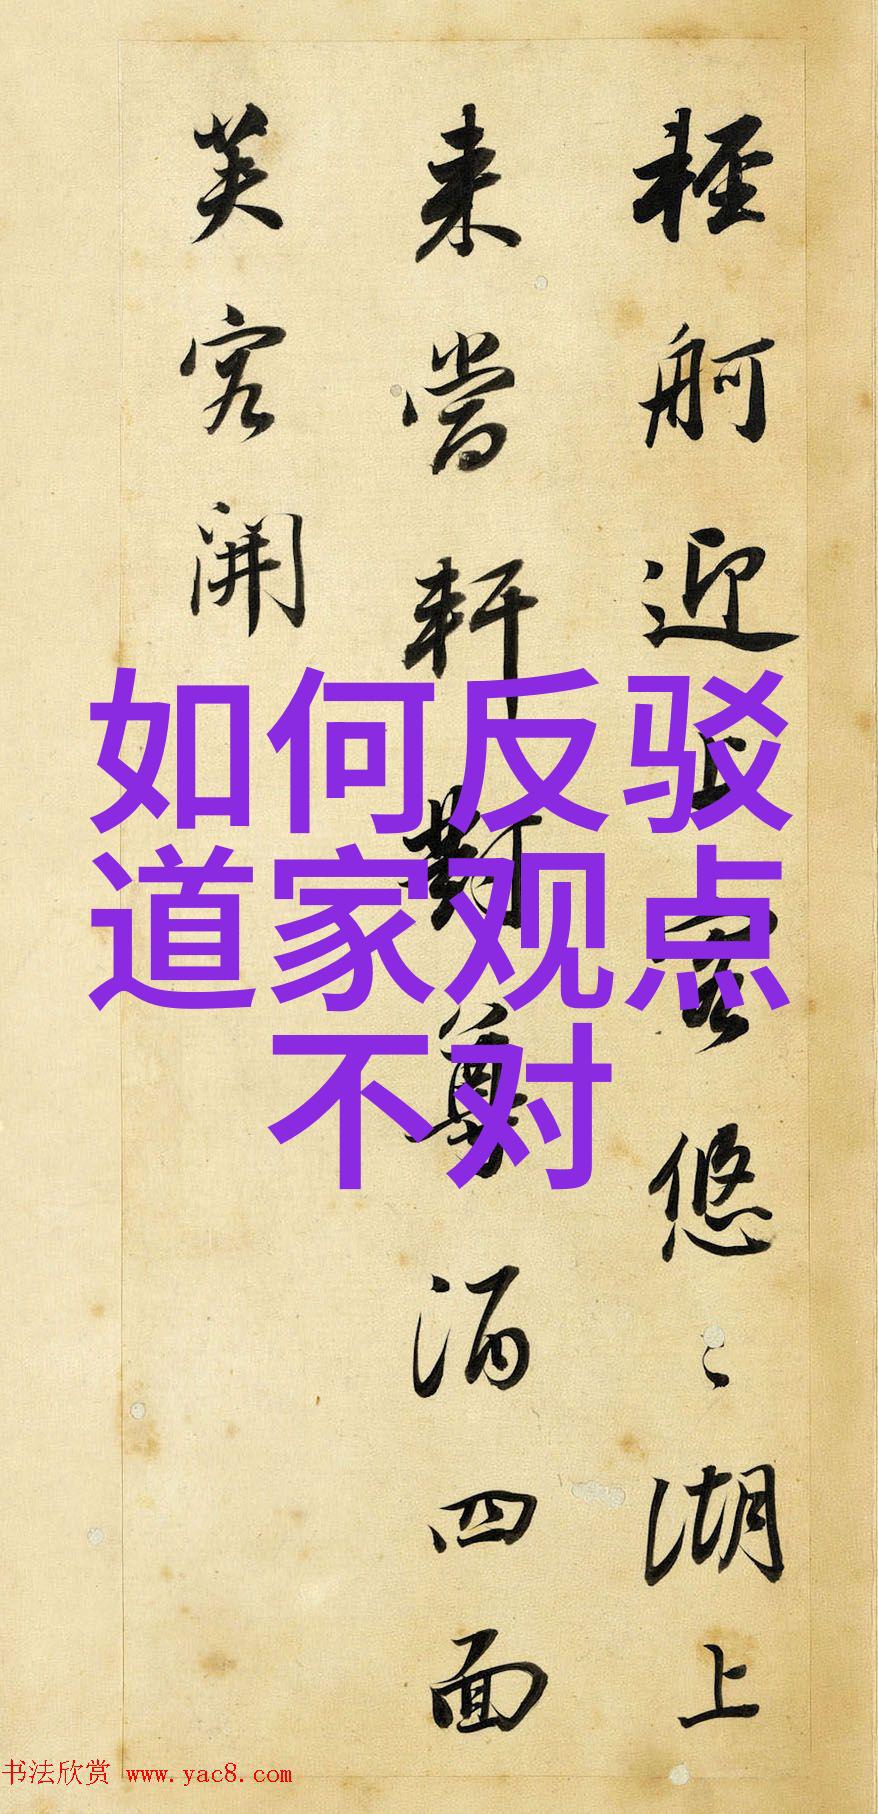 輕舸迎上客悠〻湖上
来當軒對尊酒四面
芙容開
如何反驳
道家观点
不对
书法欣赏 www.yac8.com